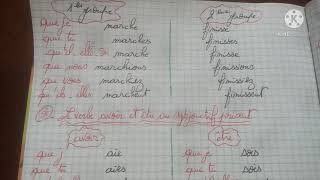 1er groupe 2ème groupe
que je marche finisse
que tu marches finisses
qu'il, elle, on marche finisse
que nous marchions finissions
que vous marchiez finissiez
qu'ils, elles marchent finissent
Le verbe avoir et être au subjonctif présent
avoir être
que j' aie que je sois
que tu aies que tu sois